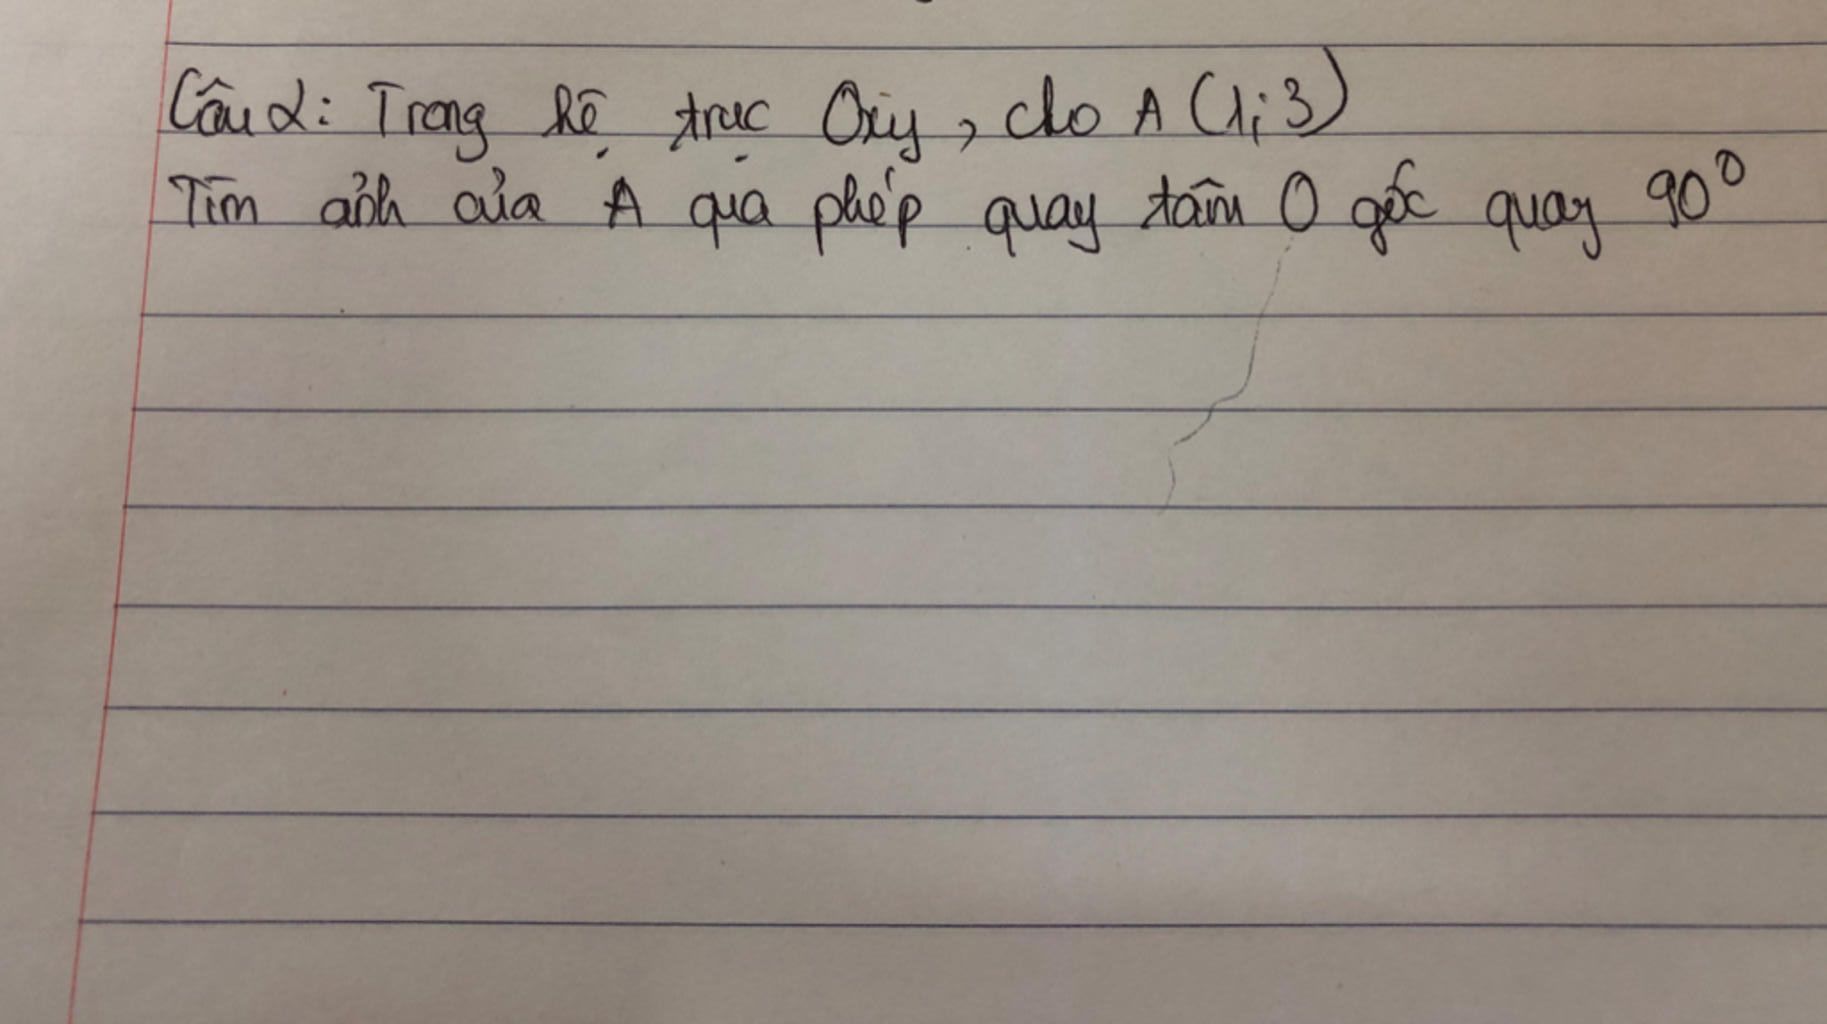 Câu 2: Trong hệ trục Oxy, cho A (1; 3)
Tìm ảnh của A qua phép quay tâm O góc quay 90°